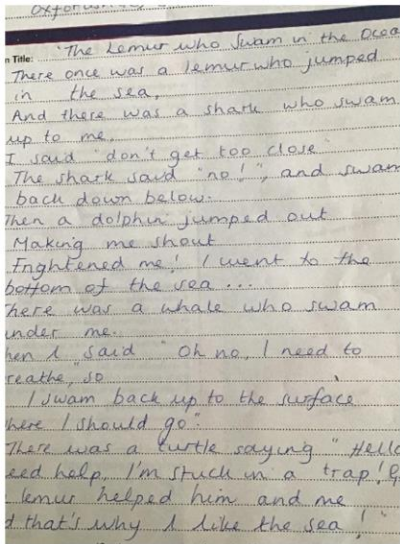 n Title: "The Lemur who Swam in the Ocea
There once was a lemur who jumped
in the sea,
And there was a shark who swam
up to me.
I said "don't get too close"
The shark said "no!", and swam
back down below.
Then a dolphin jumped out
Making me shout
Frightened me! I went to the
bottom of the sea ...
There was a whale who swam
under me.
hen I said "Oh no, I need to
reathe, so
I swam back up to the surface
here I should go".
There was a turtle saying "Hello
eed help, I'm stuck in a trap!
lemur helped him and me
d that's why I like the sea!"